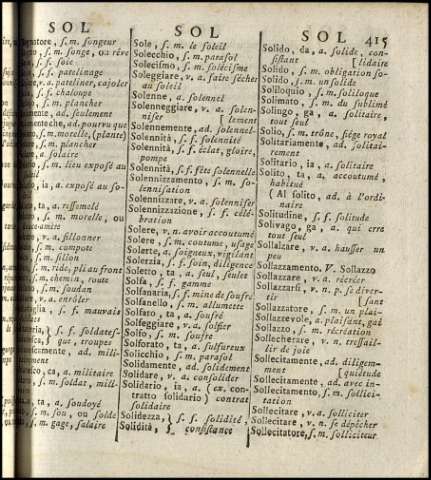 SOL
SOL
SOL
415
gnatore, s. m. songeur
s. m. songe, ou rêve
s. f. soie
s. f. patelinage
v. a. pateliner, cajoler
s. f. chaloupe
s. m. plancher
ad. seulement
ad. pourvu que
s. m. morelle, (plante)
s. m. plancher
a. solaire
s. m. lieu exposé au
soleil
ia, a. exposé au so-
ta, a. ressemelé
s. m. morelle, ou
v. a. sillonner
s. m. compote
s. m. sillon
s. m. ride, pli au front
s. m. chemin, route
s. m. soudan
v. a. enrôler
s. f. mauvais
s. f. soldates-
que, troupes
ad. mili-
ca, a. militaire
s. m. soldat, mili-
ta, a. soudoyé
s. m. sou, ou solde
s. m. gage, salaire
Sole, s. m. le soleil
Solecchio, s. m. parasol
Solecismo, s. m. solécisme
Soleggiare, v. a. faire sécher
au soleil
Solenne, a. solennel
Solenneggiare, v. a. solen-
niser [lement
Solennemente, ad. solennel-
Solennità, s. f. solennité
Solennità, s. f. éclat, gloire,
pompe
Solennità, s. f. fête solennelle
Solennizzamento, s. m. so-
lennisation
Solennizzare, v. a. solenniser
Solennizzazione, s. f. célé-
bration
Solere, v. n. avoir accoutumé
Solere, s. m. coutume, usage
Solerte, a. soigneux, vigilant
Solerzia, s. f. soin, diligence
Soletto, ta, a. seul, seulet
Solfa, s. f. gamme
Solfanaria, s. f. mine de soufre
Solfanello, s. m. allumette
Solfato, ta, a. soufré
Solfeggiare, v. a. solfier
Solfo, s. m. soufre
Solforato, ta, a. sulfureux
Solicchio, s. m. parasol
Solidamente, ad. solidement
Solidare, v. a. consolider
Solidario, ia, a. (ex. con-
tratto solidario) contrat
solidaire
Solidezza, } s. f. solidité,
Solidità, } consistance
Solido, da, a. solide, con-
sistant [lidaire
Solido, s. m. obligation so-
Solido, s. m. un solide
Soliloquio, s. m. soliloque
Solimato, s. m. du sublimé
Solingo, ga, a. solitaire,
tout seul
Solio, s. m. trône, siége royal
Solitariamente, ad. solitai-
rement
Solitario, ia, a. solitaire
Solito, ta, a. accoutumé,
habitué
(Al solito, ad. à l'ordi-
naire
Solitudine, s. f. solitude
Solivago, ga, a. qui erre
tout seul
Sollalzare, v. a. hausser un
peu
Sollazzamento, V. Sollazzo
Sollazzare, v. a. récréer
Sollazzarsi, v. n. p. se diver-
tir [sant
Sollazzatore, s. m. un plai-
Sollazzevole, a. plaisant, gai
Sollazzo, s. m. récréation
Sollecherare, v. n. tressail-
lir de joie
Sollecitamente, ad. diligem-
ment [quiétude
Sollecitamente, ad. avec in-
Sollecitamento, s. m. sollici-
tation
Sollecitare, v. a. solliciter
Sollecitare, v. n. se dépêcher
Sollecitatore, s. m. solliciteur